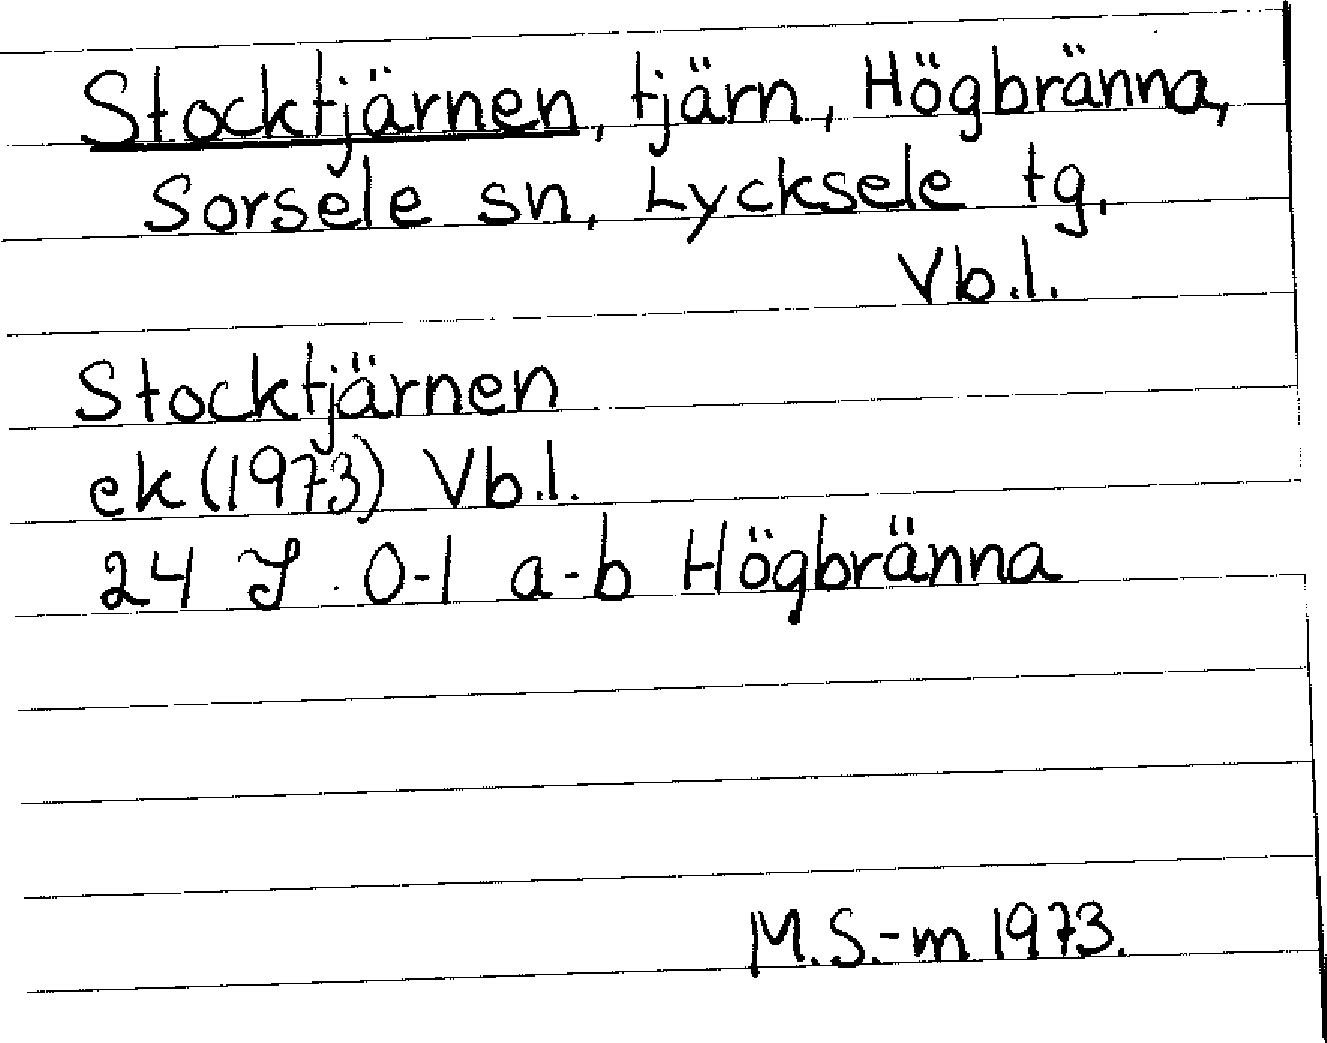 Stocktjärnen, tjärn, Högbränna,
Sorsele sn, Lycksele tg,
Vb.l.
Stocktjärnen
ek (1973) Vb.l.
24 I 0-1 a-b Högbränna
M.S.-m 1973.